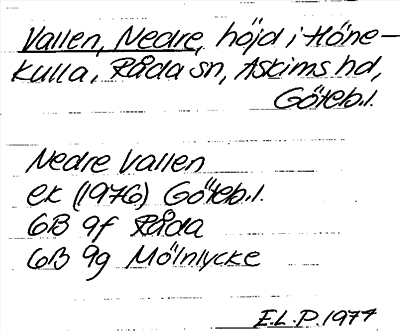 Vallen, Nedre, höjd i Höne-
kulla, Råda sn, Askims hd,
Göteb.l.
Nedre Vallen
ek (1976) Göteb.l.
6B 9f Råda
6B 9g Mölnlycke
E.L.P. 1977